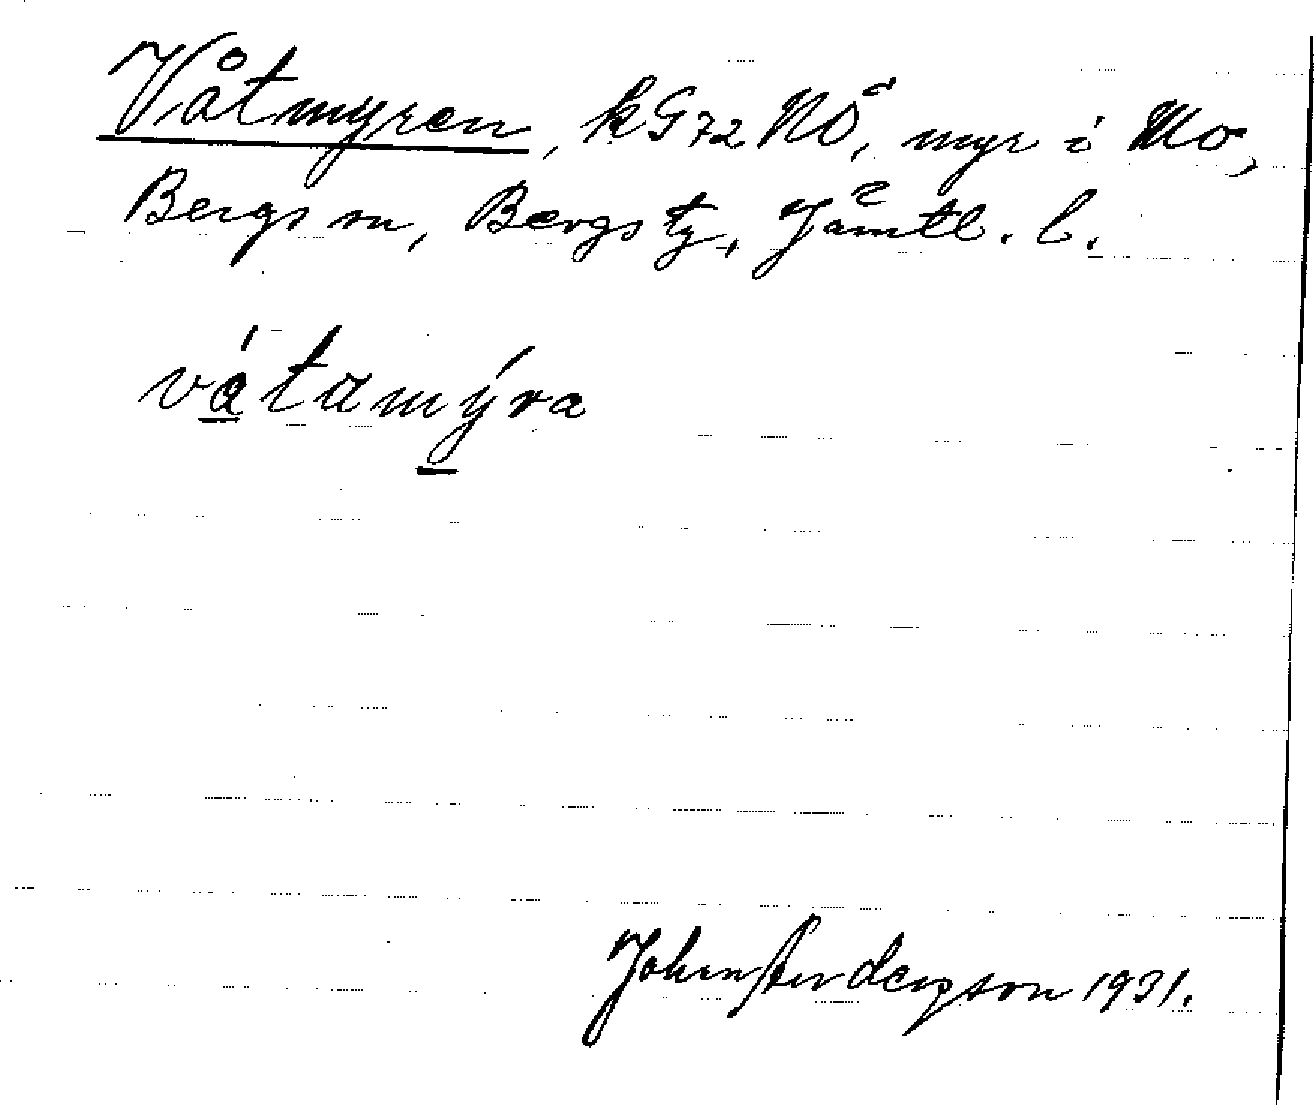 Våtmyren, kG72 NÖ, myr i Mo,
Bergs sn, Bergs tg, Jämtl. l.
vátamýra
Johan Anderzson 1931.